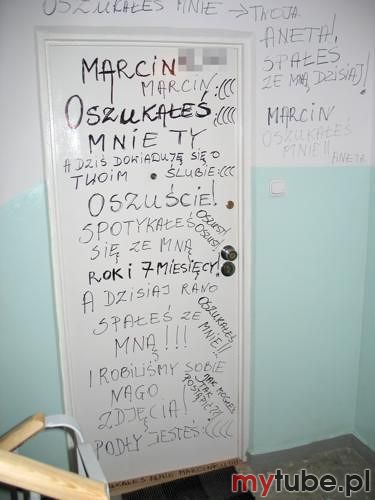 OSZUKAŁEŚ MNIE → TWOJA
ANETA!
SPAŁEŚ
ZE MNĄ DZISIAJ!
MARCIN
OSZUKAŁEŚ
MNIE!!
ANETA
MARCIN
MARCIN :(((
OSZUKAŁEŚ :((((
MNIE TY
A DZIŚ DOWIADUJĘ SIĘ O
TWOIM ŚLUBIE :(((
OSZUŚCIE!
SPOTYKAŁEŚ
SIĘ ZE MNĄ
OSZUST!
OSZUST!
ROK I 7 MIESIĘCY!
A DZISIAJ RANO
SPAŁEŚ ZE
MNĄ!!!
OSZUKAŁEŚ
MNIE!!!
I ROBILIŚMY SOBIE
NAGO
ZDJĘCIA!
JAK MOGŁEŚ
TAK
POSTĄPIĆ?!
PODŁY JESTEŚ :((((
OSZUKAŁEŚ MNIE MARCIN
mytube.pl